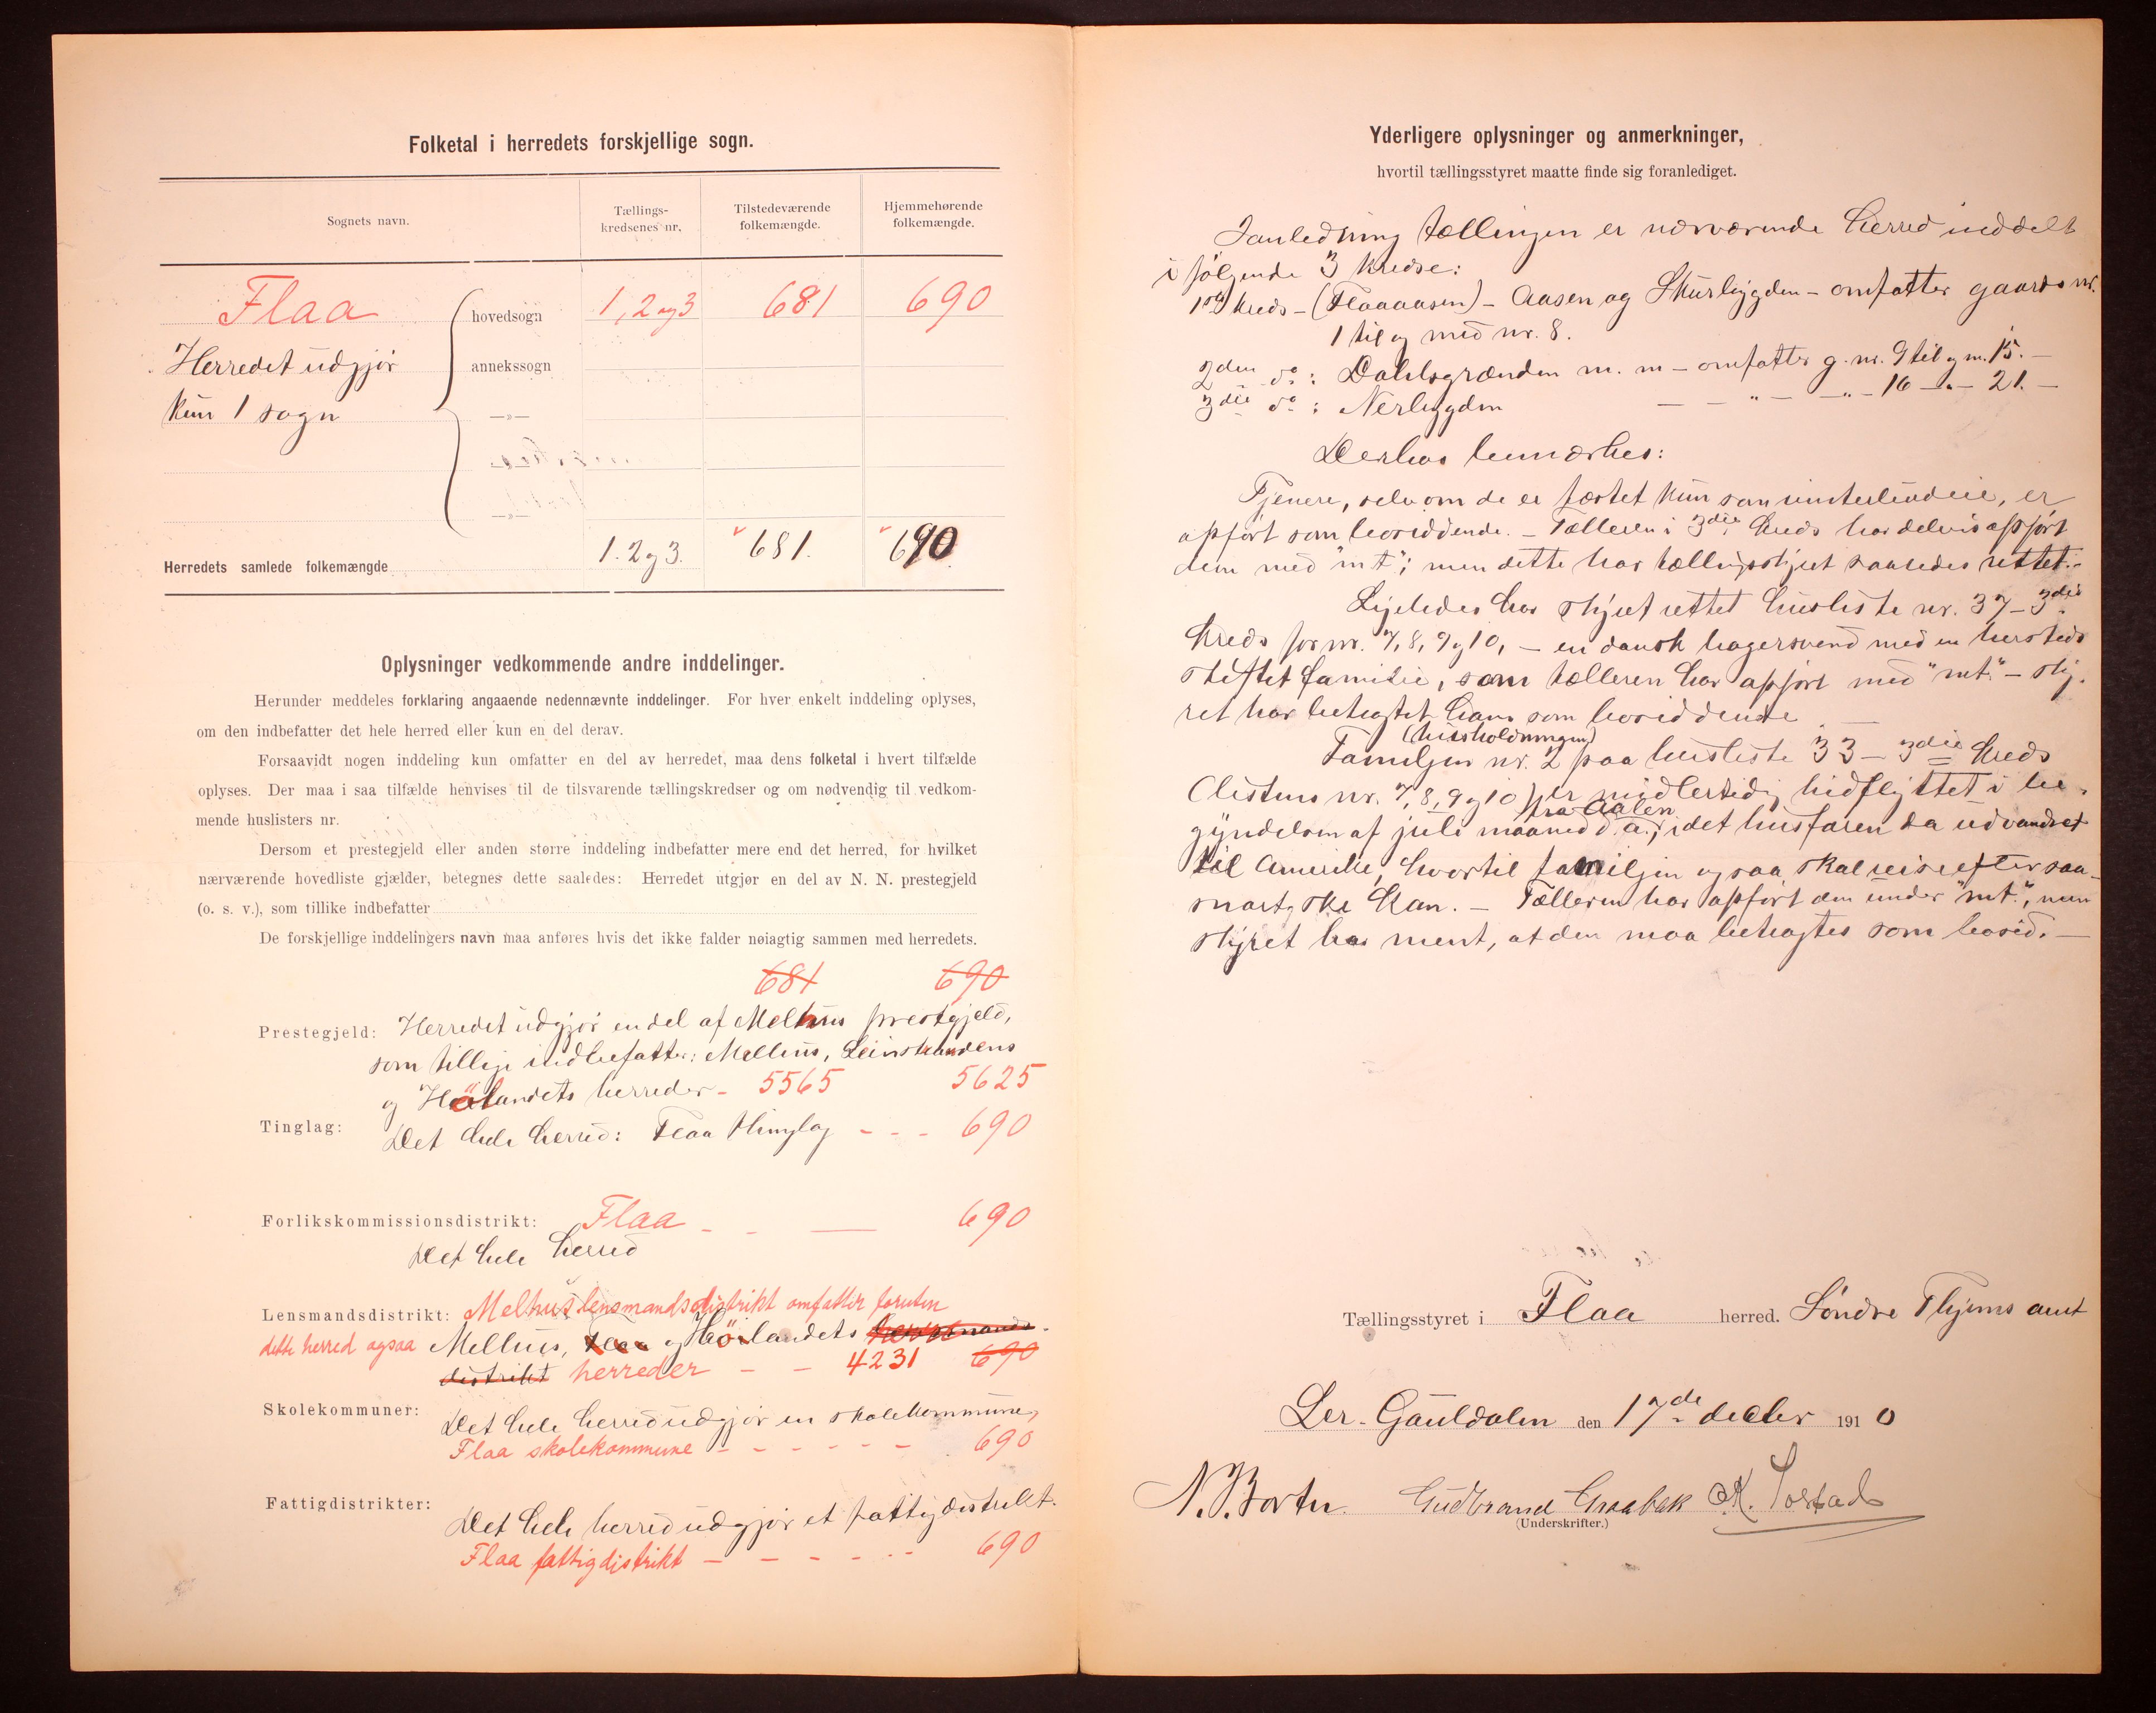 Folketal i herredets forskjellige sogn.
Sognets navn.
Tællings-
kredsenes nr.
Tilstedeværende
folkemængde.
Hjemmehørende
folkemængde.
Flaa
hovedsogn
1, 2 og 3
681
690
Herredet udgjør
annekssogn
kun 1 sogn
—»—
—»—
Herredets samlede folkemængde
1. 2 og 3.
681.
690.
Oplysninger vedkommende andre inddelinger.
Herunder meddeles forklaring angaaende nedennævnte inddelinger. For hver enkelt inddeling oplyses,
om den indbefatter det hele herred eller kun en del derav.
Forsaavidt nogen inddeling kun omfatter en del av herredet, maa dens folketal i hvert tilfælde
oplyses. Der maa i saa tilfælde henvises til de tilsvarende tællingskredser og om nødvendig til vedkom-
mende huslisters nr.
Dersom et prestegjeld eller anden større inddeling indbefatter mere end det herred, for hvilket
nærværende hovedliste gjælder, betegnes dette saaledes: Herredet utgjør en del av N. N. prestegjeld
(o. s. v.), som tillike indbefatter
De forskjellige inddelingers navn maa anføres hvis det ikke falder nøiagtig sammen med herredets.
681 690
Prestegjeld: Herredet udgjør en del af Melhus prestgjeld,
som tillige indbefatter: Melhus, Leinstrandens
og Hølandets herreder - 5565 5625
Tinglag: Det hele herred: Flaa thinglag - - - 690
Forlikskommissionsdistrikt: Flaa - - — 690
Det hele herred
Lensmandsdistrikt: Melhus lensmandsdistrikt omfatter foruten
dette herred ogsaa Melhus, Flaa og Hølandets lensmands-
distrikt herreder - - 4231 690
Skolekommuner: Det hele herred udgjør en skolekommune,
Flaa skolekommune - - - - - - 690
Fattigdistrikter: Det hele herred udgjør et fattigdistrikt.
Flaa fattigdistrikt - - - - - 690
Yderligere oplysninger og anmerkninger,
hvortil tællingsstyret maatte finde sig foranlediget.
I anledning tællingen er nærværende herred inddelt
i følgende 3 kredse:
1ste kreds - (Flaaaasen) - Aasen og Skurbygden - omfatter gaards nr.
1 til og med nr. 8.
2den do: Dahlsgrænden m. m - omfatter g. nr. 9 til og m. 15. -
3die do: Nerbygden — — " — —"— 16 —"— 21. —
Derhos bemærkes:
Tjenere, selv om de er fæstet kun som vinterleudeie, er
opført som bosiddende. - Tælleren i 3die kreds har delvis opført
dem med "mt"; men dette har tællingsstyret saaledes rettet.-
Ligeledes har styret rettet husliste nr. 37 - 3die
kreds for nr. 7, 8, 9 og 10, - en dansk bagersvend med en hersteds
stiftet familie, som tælleren har opført med "mt." - Sty-
ret har betragtet ham som bosiddende. —
(husholdningen)
Familjen nr. 2 paa husliste 33 - 3die kreds
(listens nr. 7, 8, 9 og 10) er midlertidig hidflyttet i be-
fra Aalen
gyndelsen af juli maaned d. a.; idet husfaren da udvandret
til Amerika, hvortil familjen ogsaa skal reise efter saa-
snart ske kan. - Tælleren har opført dem under "mt.", men
styret har ment, at den maa betragtes som bosid. —
Tællingsstyret i Flaa herred. Søndre Thjems amt
Ler - Gauldalen den 17de decbr 1910
N. Borten. Gudbrand Graabak K. Sorstad
(Underskrifter.)